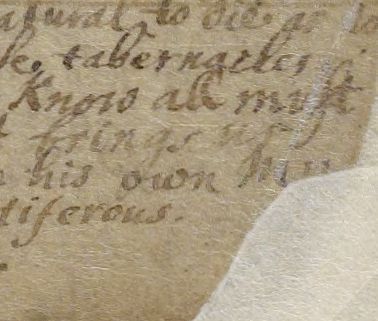 atural to die as to
tabernacles
Know all must
brings us
his own
tiferous.